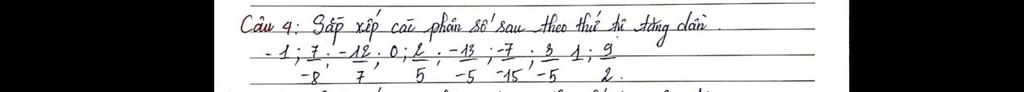 Câu 4: Sắp xếp các phân số sau theo thứ tự tăng dần.
-1; 7/-8; -12/7; 0; 2/5; -13/-5; -7/-15; 3/-5 1; 9/2.